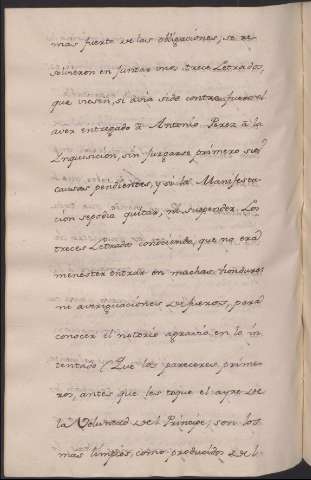 mas fuerte de las obligaciones, se re-
solvieron en juntar unos trece Letrados,
que viesen, si avia sido contrafuero el
aver entregado à Antonio Perez à la
Inquisicion, sin juzgarse primero sus
causas pendientes, y si la Manifesta-
cion se podia quitar, ni suspender. Los
treces Letrados conociendo, que no era
menester entrar en muchas honduras
ni averiguaciones de fueros, para
conocer el notorio agravio en lo in-
tentado (Que los pareceres prime-
ros, antes que les toque el ayre de
la Voluntad del Principe, son los
mas limpios, como producidos del